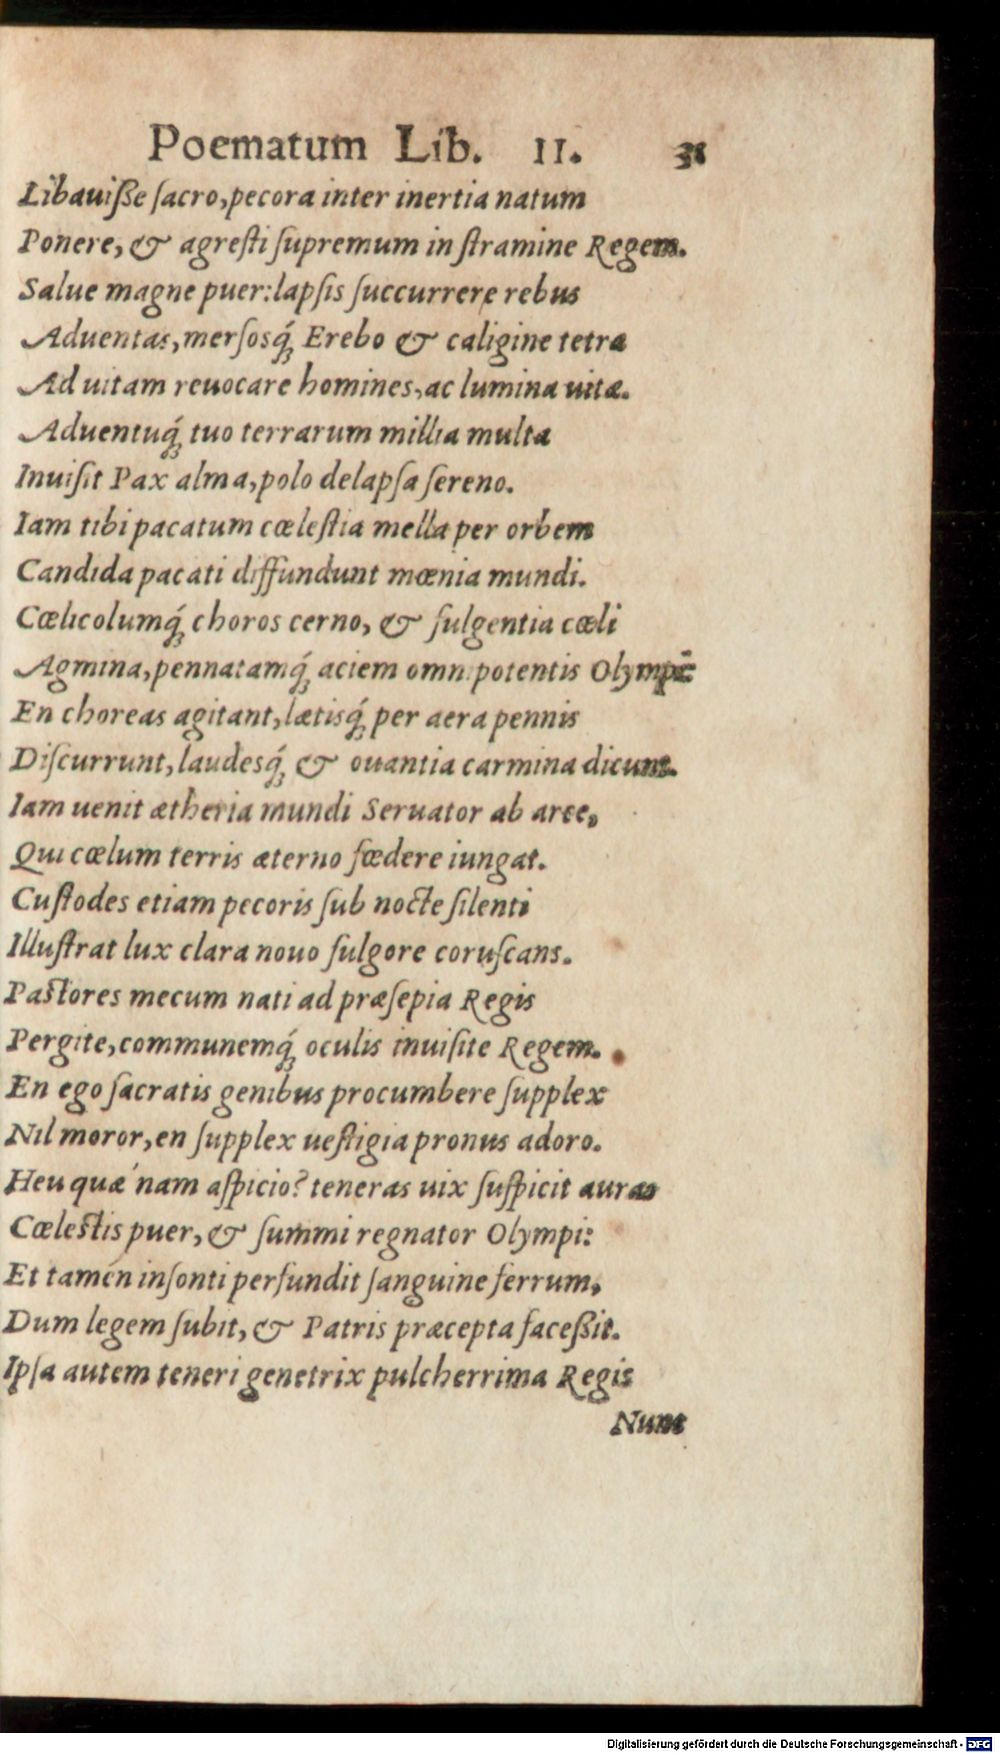 Poematum Lib. II. 31
Libauiſſe ſacro, pecora inter inertia natum
Ponere, & agreſti ſupremum in ſtramine Regem.
Salue magne puer: lapſis ſuccurrere rebus
Aduentas, merſosq́; Erebo & caligine tetra
Ad uitam reuocare homines, ac lumina uitæ.
Aduentuq́; tuo terrarum millia multa
Inuiſit Pax alma, polo delapſa ſereno.
Iam tibi pacatum cœleſtia mella per orbem
Candida pacati diffundunt mœnia mundi.
Cœlicolumq́; choros cerno, & fulgentia cœli
Agmina, pennatamq́; aciem omnipotentis Olympi:
En choreas agitant, lætisq́; per aera pennis
Diſcurrunt, laudesq́; & ouantia carmina dicunt.
Iam uenit ætheria mundi Seruator ab arce,
Qui cœlum terris æterno fœdere iungat.
Cuſtodes etiam pecoris ſub nocte ſilenti
Illuſtrat lux clara nouo fulgore coruſcans.
Paſtores mecum nati ad præſepia Regis
Pergite, communemq́; oculis inuiſite Regem.
En ego ſacratis genibus procumbere ſupplex
Nil moror, en ſupplex ueſtigia pronus adoro.
Heu quæ nam aſpicio? teneras uix ſuſpicit auras
Cœleſtis puer, & ſummi regnator Olympi:
Et tamen inſonti perfundit ſanguine ferrum,
Dum legem ſubit, & Patris præcepta faceſſit.
Ipſa autem teneri genetrix pulcherrima Regis
Nunc
Digitalisierung gefördert durch die Deutsche Forschungsgemeinschaft - DFG